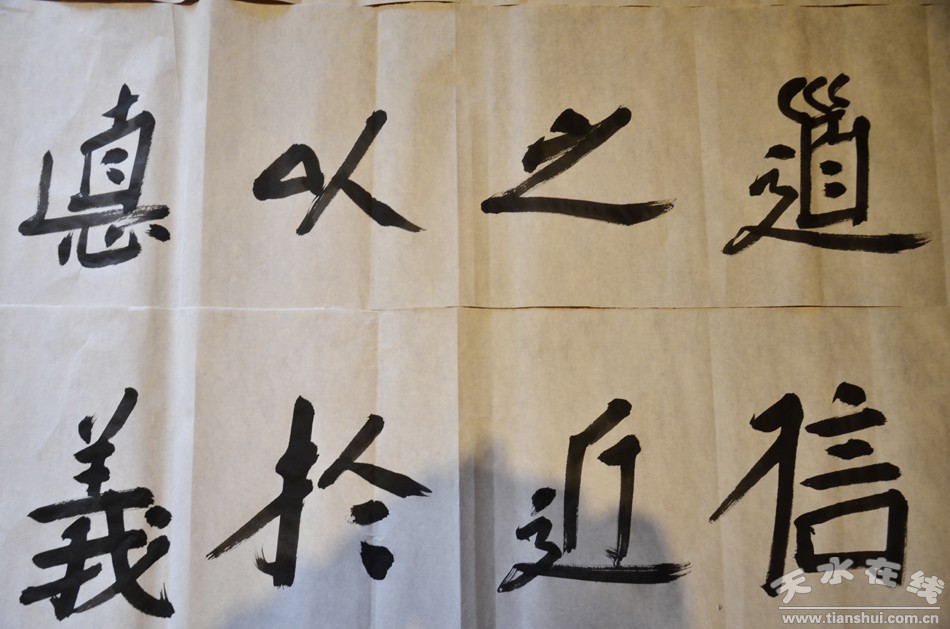 道之以悳
信近於義
天水在线
www.tianshui.com.cn